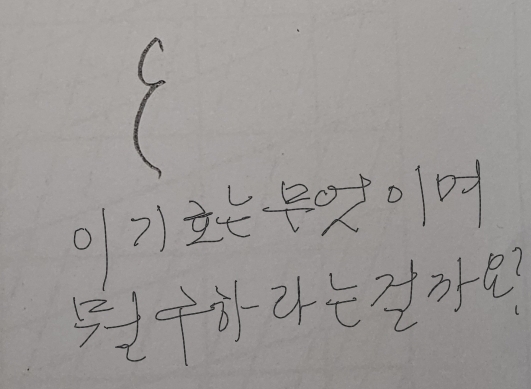 {
이 기호는 무엇이며
무얼 구하라는걸까요?